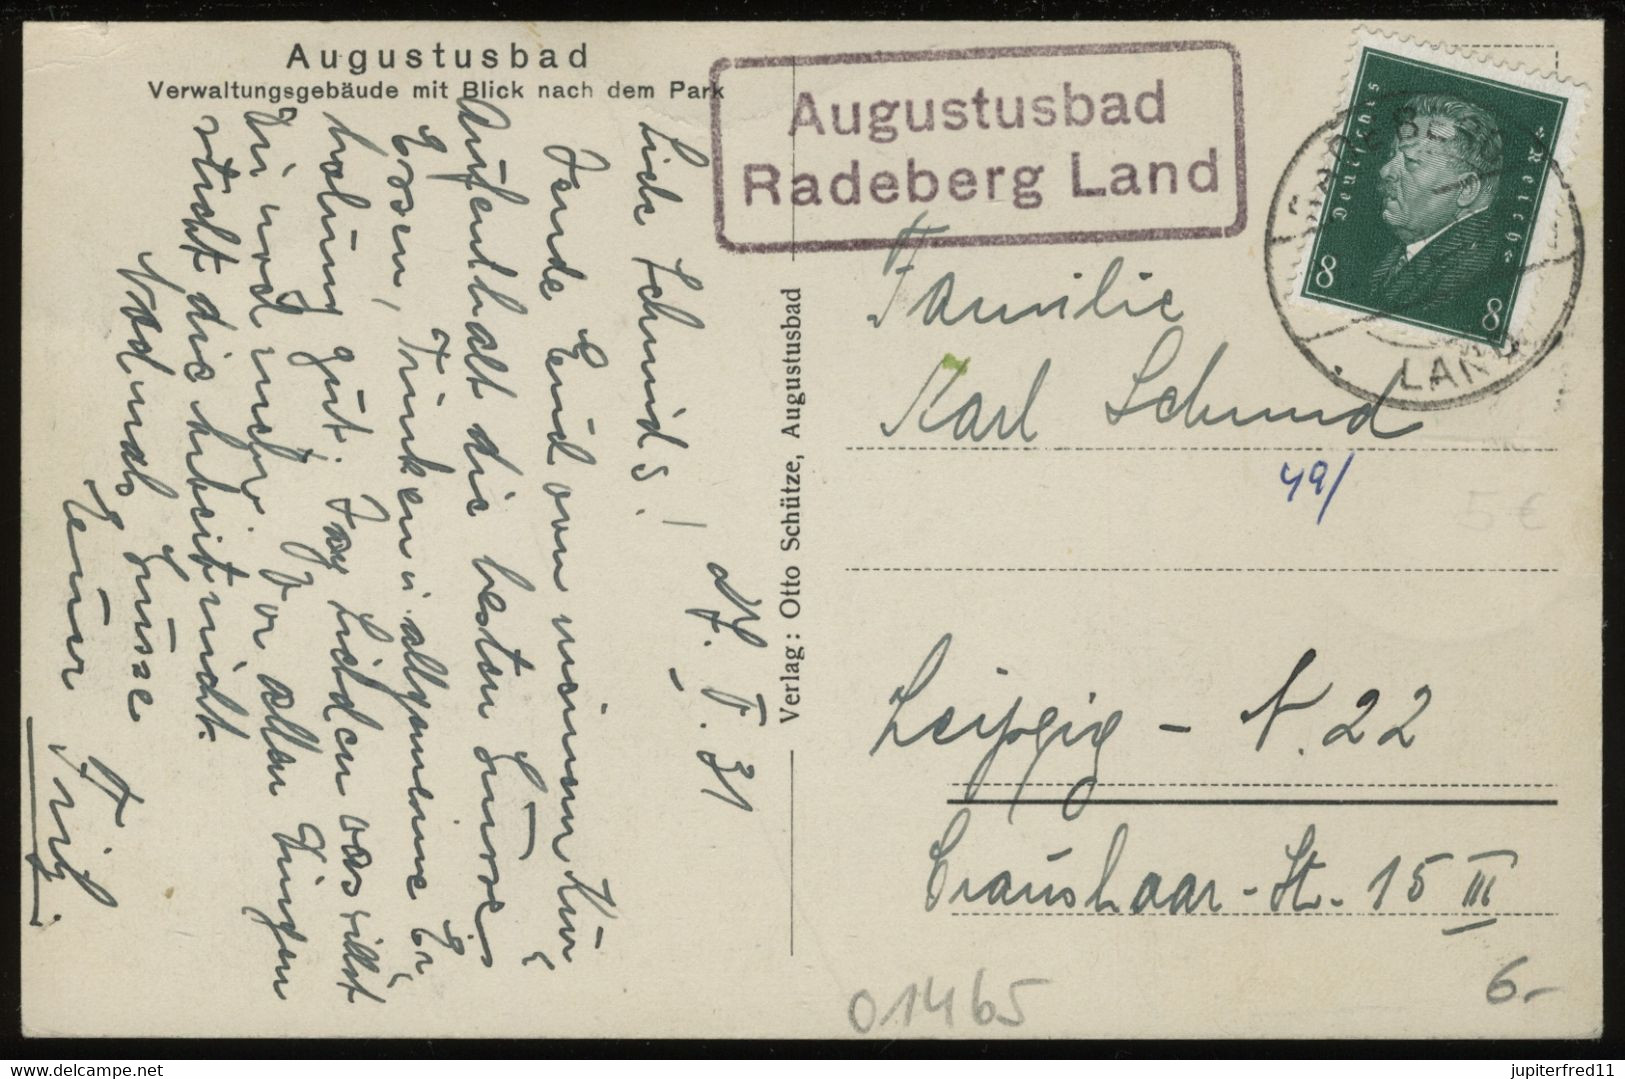 Augustusbad
Verwaltungsgebäude mit Blick nach dem Park
Augustusbad
Radeberg Land
Deutsches Reich
8 8
LAND
Verlag: Otto Schütze, Augustusbad
Liebe Schmids!
d. V. 31
Sende Euch von meinem Kur
Aufenthalt die besten Grüsse
Essen, Trinken u. allgemeine Er
holung gut.
Vor allen Dingen
stört die Arbeit nicht.
Nochmals Grüsse
Euer
Familie
Karl Schmid
49/
Leipzig - N. 22
Craushaar-Str. 15 III
01465
6.-
jupiterfred11